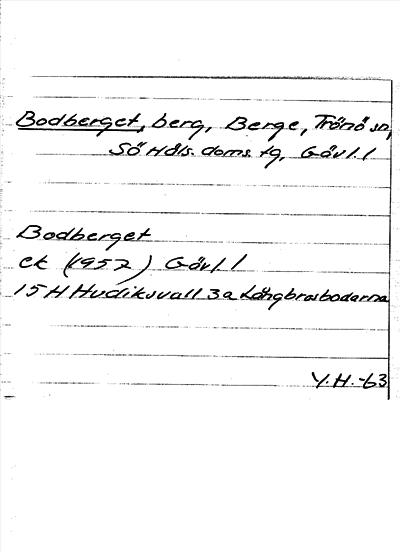 Bodberget, berg, Berge, Trönö sn,
Sö Häls. doms. tg, Gävl. l
Bodberget
ek (1957) Gävl. l
15 H Hudiksvall 3a Långbrosbodarna
Y.H. -63